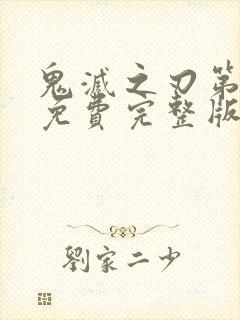 鬼滅之刃第
免費完整版
劉家二少